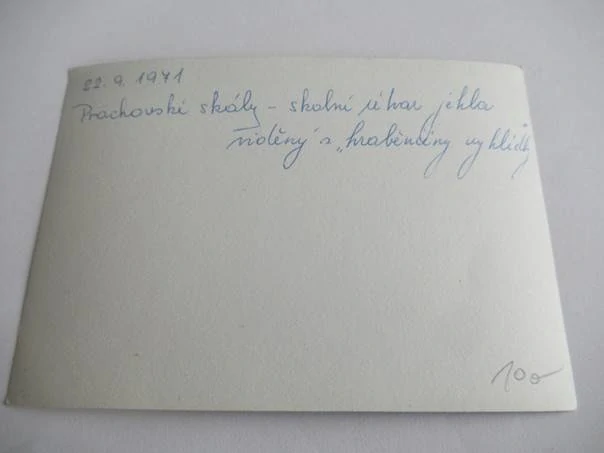 22. 9. 1971
Prachovské skály - skalní útvar jehla
viděný s „hraběnčiny vyhlídky
100